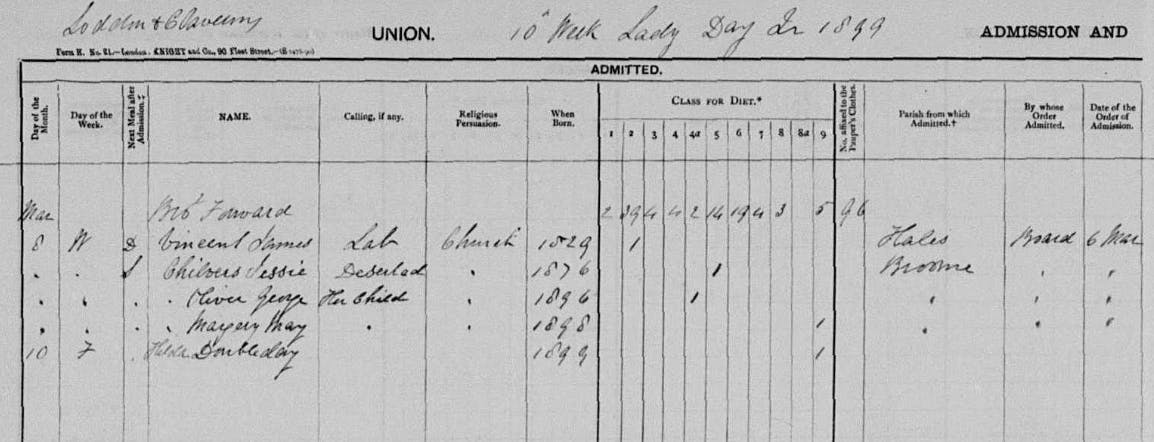 Loddon & Clavering UNION. 10th Week Lady Day Qr 1899 ADMISSION AND
Form H. No. 21.—London: KNIGHT and Co., 90 Fleet Street.
ADMITTED.
Day of the Month. Day of the Week. Next Meal after Admission.‡ NAME. Calling, if any. Religious Persuasion. When Born. CLASS FOR DIET.* No. affixed to the Pauper's Clothes. Parish from which Admitted.† By whose Order Admitted. Date of the Order of Admission.
1 2 3 4 4a 5 6 7 8 8a 9
Mar Bro't Forward 2 39 4 4 2 14 19 4 3 5 96
8 W D Vincent James Lab Church 1829 1 Hales Board 6 Mar
" " S Chilvers Jessie Deserted " 1876 1 Broome " "
" " " " Oliver George Her Child " 1896 1 " " "
" " " " Margery May " " 1898 1 " " "
10 F " Hilda Doubleday 1899 1